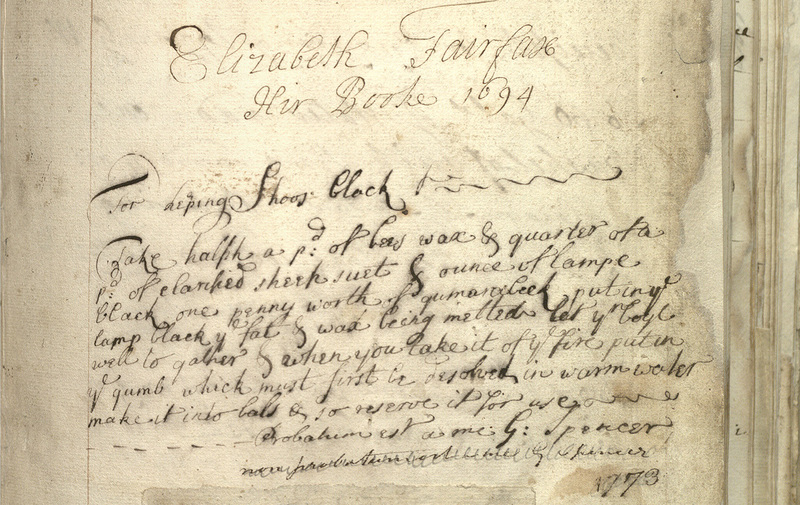 Elizabeth Fairfax
Hir Booke 1694
For keping Shoos black
Take halfh a pd: of bees wax & quarter of a
pd: of clarified sheep suet & ounce of lampe
black one penny worth of gumarabeck put in ye
lamp black ye fat & wax being melted let ym boyl
well to gather & when you take it of ye fire put in
ye gumb which must first be desolved in warm water
make it into bals & so reserve it for use
Probatum est a me G: Spencer
1773